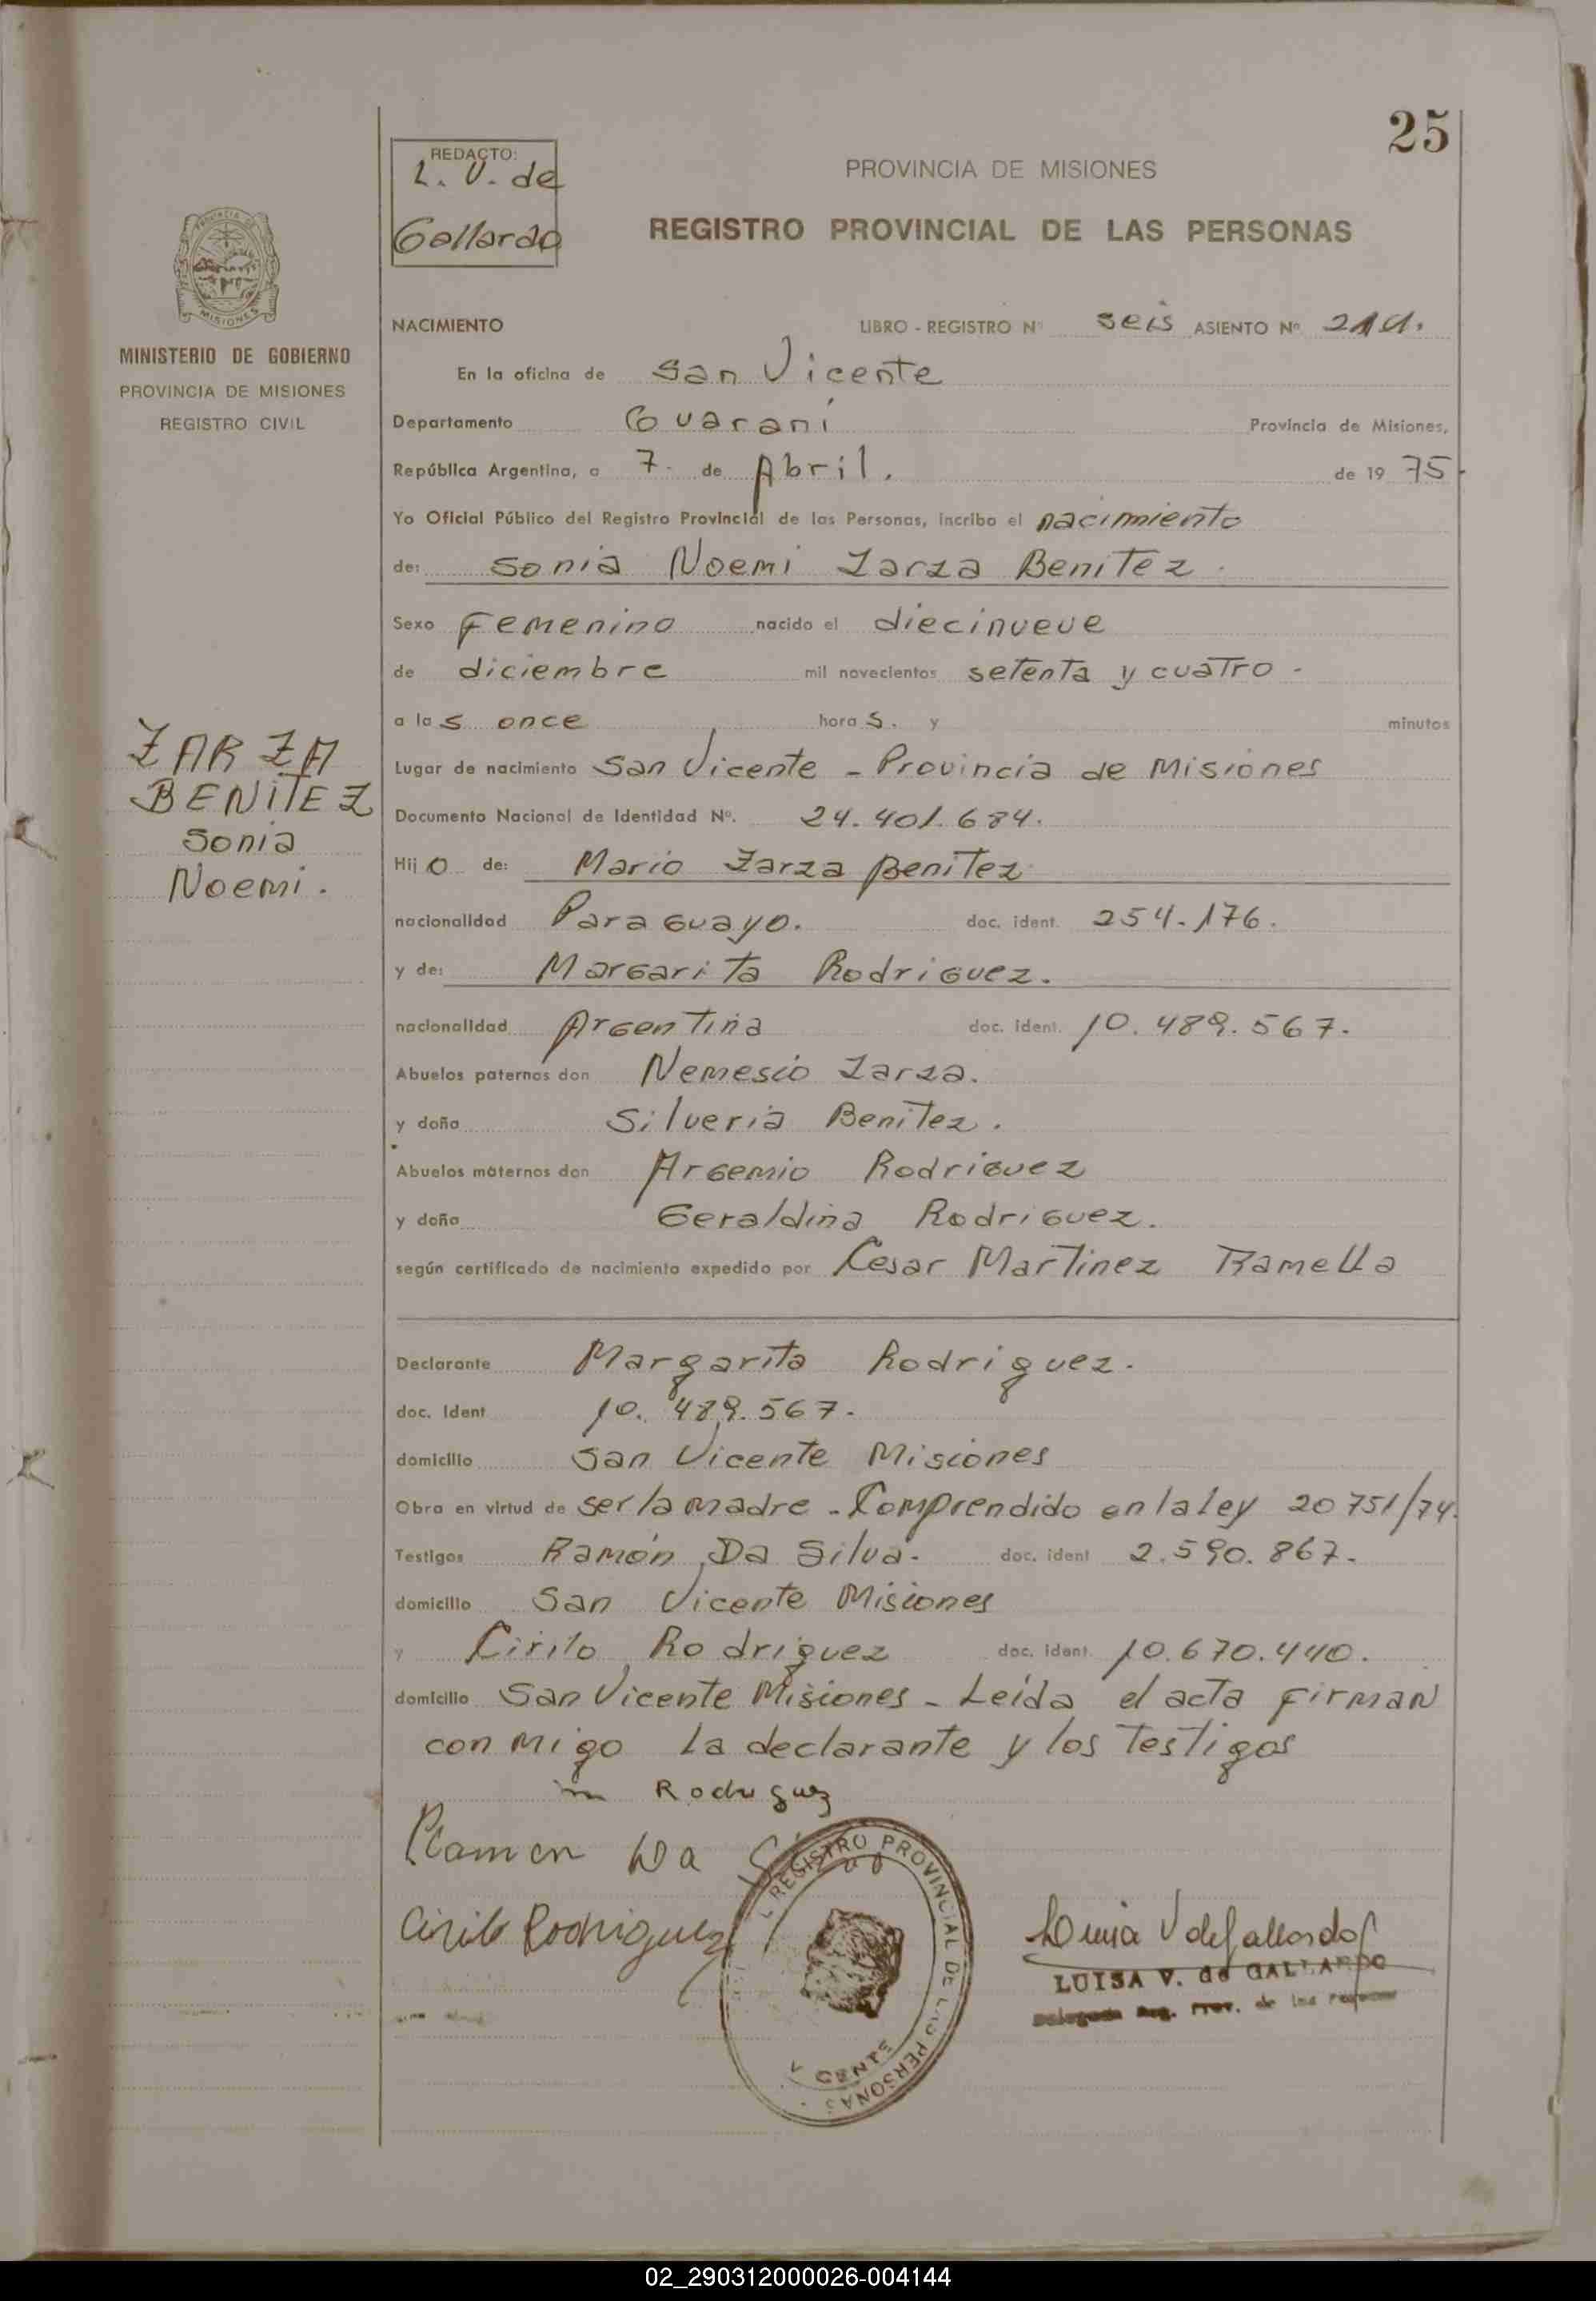 25
REDACTO:
L. V. de
Gallardo
PROVINCIA DE MISIONES
REGISTRO PROVINCIAL DE LAS PERSONAS
MISIONES
MINISTERIO DE GOBIERNO
PROVINCIA DE MISIONES
REGISTRO CIVIL
NACIMIENTO LIBRO - REGISTRO Nº seis ASIENTO Nº
En la oficina de San Vicente
Departamento Guaraní Provincia de Misiones,
República Argentina, a 7. de Abril. de 19 75
Yo Oficial Público del Registro Provincial de las Personas, incribo el nacimiento
de: Sonia Noemi Zarza Benitez.
Sexo Femenino nacido el diecinueve
de diciembre mil novecientos setenta y cuatro -
a las once horas. y minutos
Lugar de nacimiento San Vicente - Provincia de Misiones
Documento Nacional de Identidad Nº. 24.401.684.
Hijo de: Mario Zarza Benitez
nacionalidad Paraguayo. doc. ident. 254.176.
y de: Margarita Rodriguez.
nacionalidad Argentina doc. ident. 10.489.567.
Abuelos paternos don Nemesio Zarza.
y doña Silveria Benitez.
Abuelos maternos don Argemio Rodriguez
y doña Geraldina Rodriguez.
según certificado de nacimiento expedido por Cesar Martinez Ramella
ZARZA
BENITEZ
Sonia
Noemi.
Declarante Margarita Rodriguez.
doc. Ident 10.489.567.
domicilio San Vicente Misiones
Obra en virtud de ser la madre - Comprendido en la ley 20751/74.
Testigos Ramón Da Silva. doc. ident 2.590.867.
domicilio San Vicente Misiones
y Cirilo Rodriguez doc. ident. 10.670.440.
domicilio San Vicente Misiones - Leída el acta firman
con migo la declarante y los testigos
m Rodriguez
Ramon Da Silva
Cirilo Rodriguez
REGISTRO PROVINCIAL DE LAS PERSONAS
Luisa V de Gallardo
LUISA V. de GALLARDO
Delegada Reg. Prov. de las Personas
02_290312000026-004144